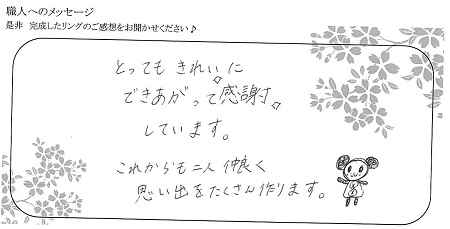 職人へのメッセージ
是非 完成したリングのご感想をお聞かせください♪
とっても きれいに
できあがって感謝
しています。
これからも二人 仲良く
思い出をたくさん作ります。